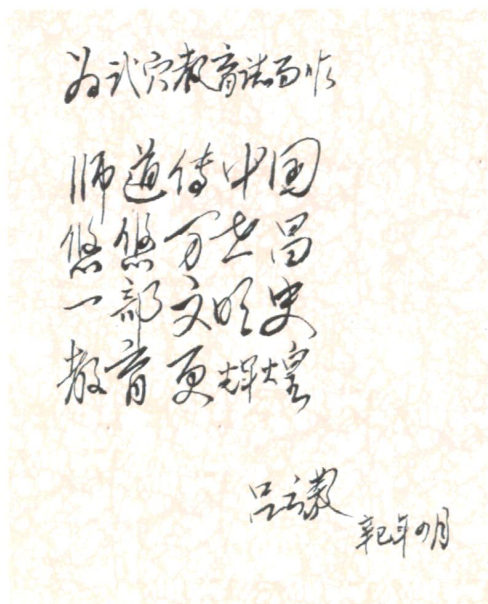 为武穴教育志而作
师道传中国
悠悠万世昌
一部文明史
教育更辉煌
吕
辛巳年四月